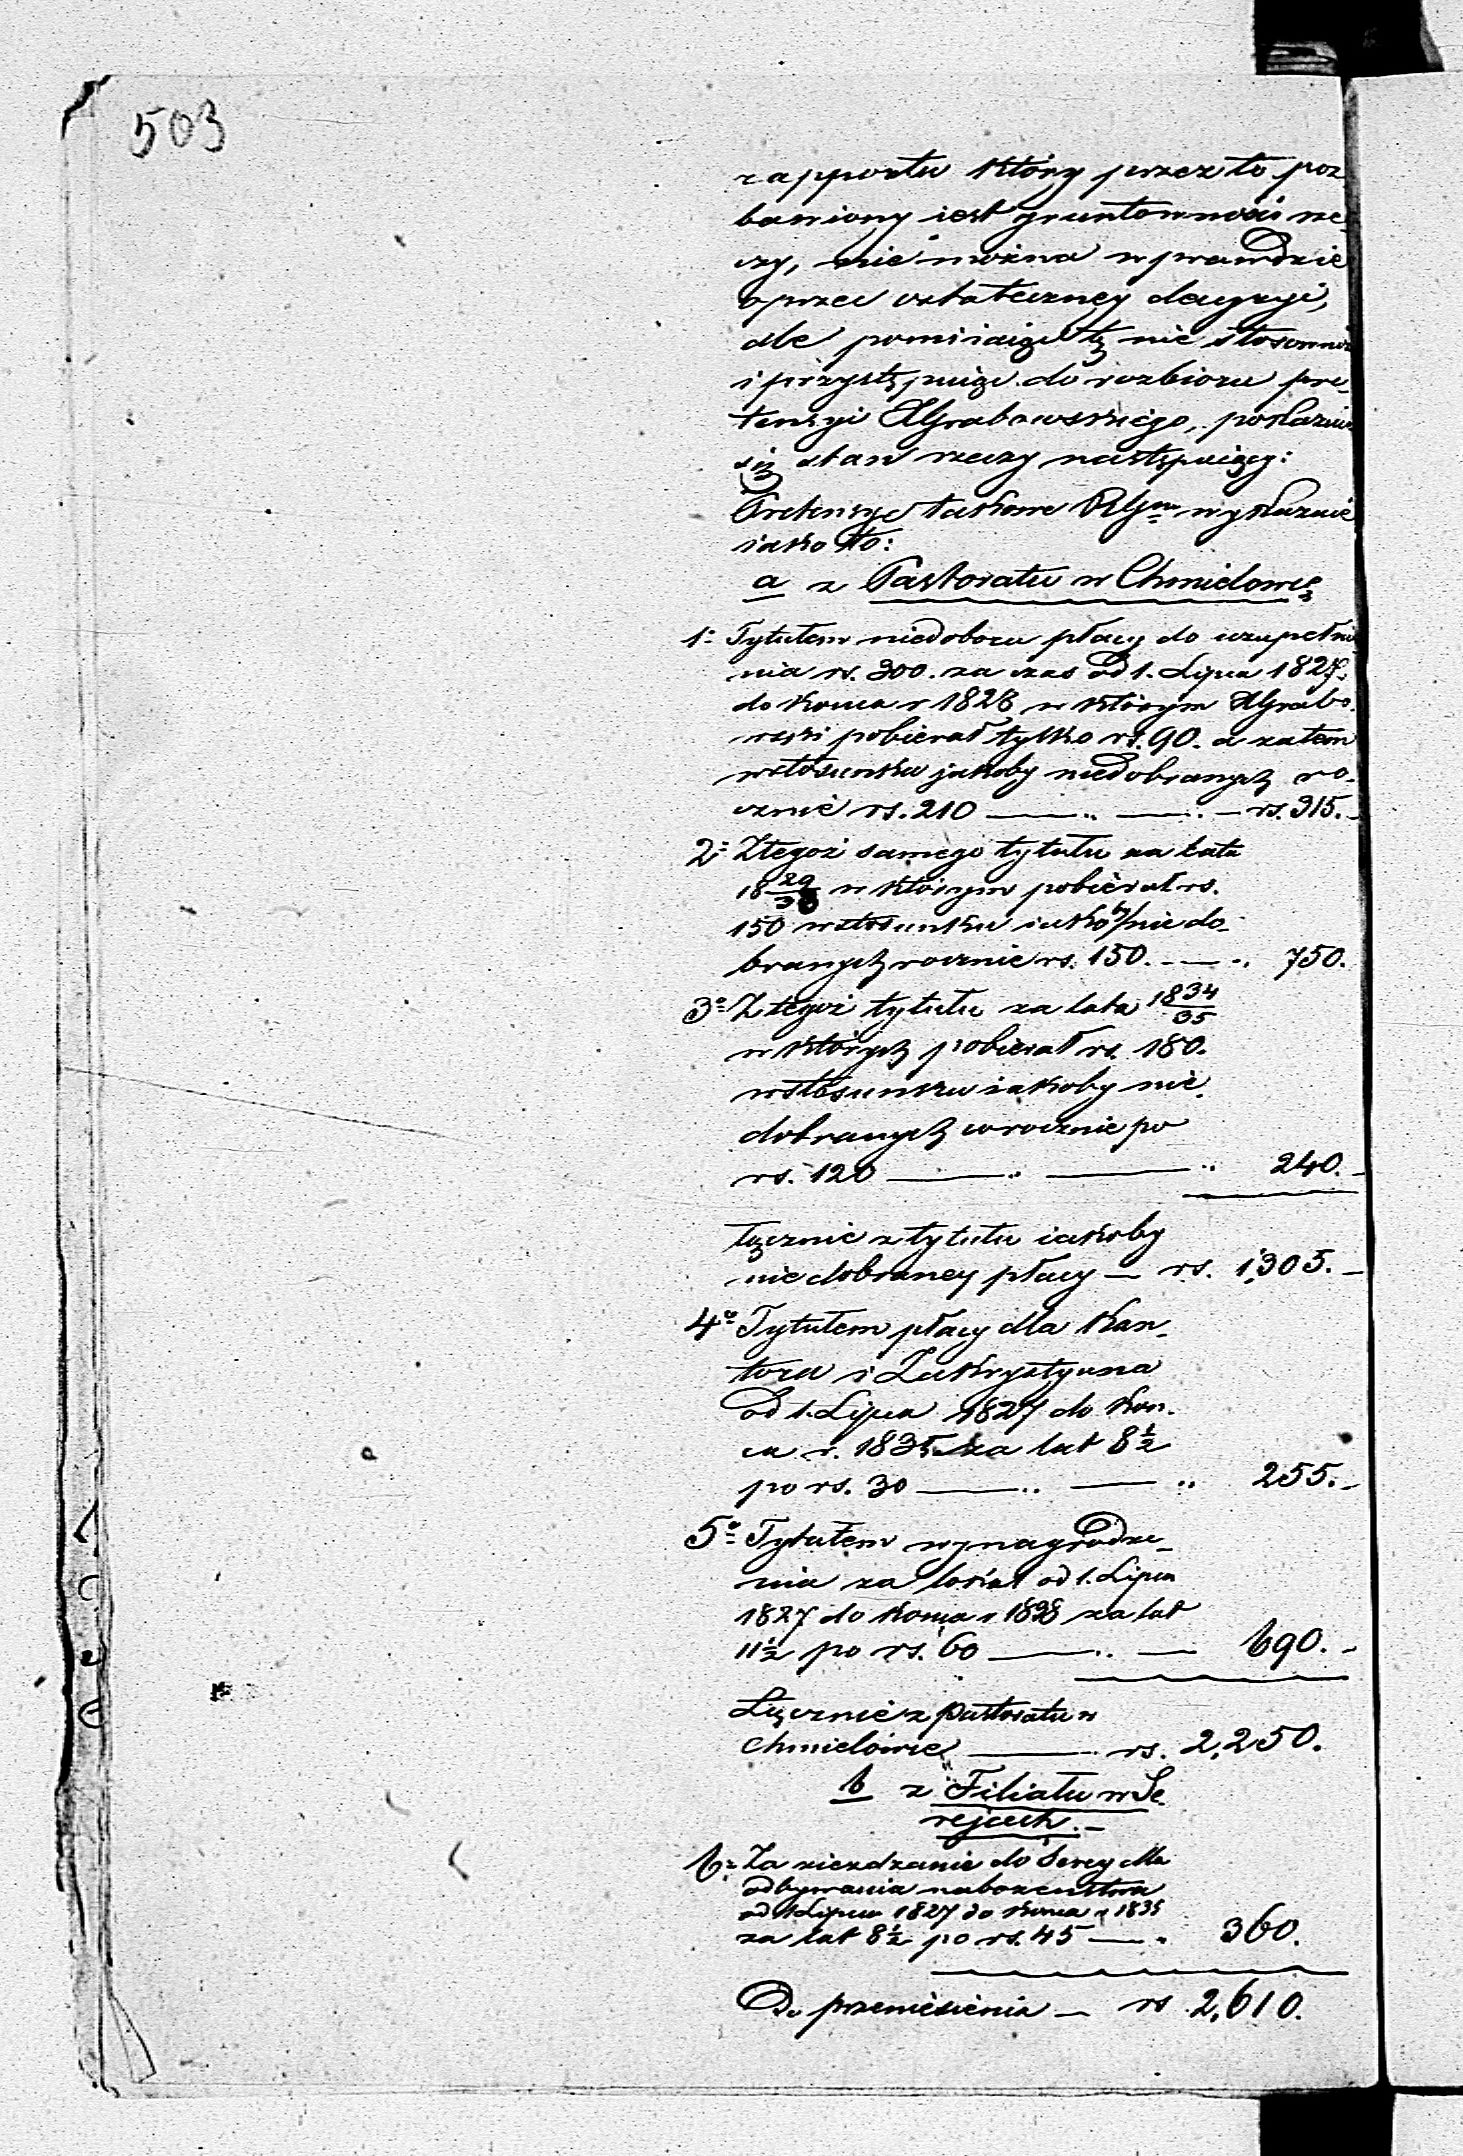 503
rapportu który przez to poz-
bawiony jest gruntowności rze-
czy, nie można wprawdzie
oprzeć ostateczney decyzyi,
ale pomiiaiąc tę nie stosowność
i przystępuiąc do rozbioru pre-
tensyi XGrabowskiego, pokazuie
się stan rzeczy następuiący:
Pretensye takowe wykazuie
iako to:
a z Pastoratu w Chmielowie
1º Tytułem niedoboru płacy do uzupełnie
nia rs. 300. za czas od 1. Lipca 1827.
do końca r 1828 w którym XGrabo-
wski pobierał tylko rs. 90. a zatem
wstosunku jakoby niedobranych ro-
cznie rs. 210 — „ — „ — rs. 315.-
2º Ztegoż samego tytułu za lata
18 29/33 w którym pobierał rs.
150 wstosunku iakoby niedo-
branych rocznie rs. 150. — „ 750.
3º Ztegoż tytułu za lata 18 34/35
w których pobierał rs. 180.
wstosunku iakoby nie-
dobranych corocznie po
rs. 120 — „ — „ 240.-
łącznie z tytułu iakoby
niedobraney płacy — rs. 1,305.-
4º Tytułem płacy dla Kan-
tora i Zakrystyana
od 1. Lipca 1827 do koń-
ca r. 1835 za lat 8½
po rs. 30 — „ — „ 255.-
5º Tytułem wynagrodze-
nia za lokal od 1. Lipca
1827 do końca r 1838 za lat
11½ po rs. 60 — „ — 690.-
Łącznie z pastoratu w
Chmielowie — rs. 2,250.
b z Filiału w Se-
rejach.-
6º Za zieżdzanie do Serey dla
odbywania nabożeństwa
od 1 Lipca 1827 do końca r 1835
za lat 8½ po rs. 45 — „ 360.
Do przeniesienia — rs 2,610.